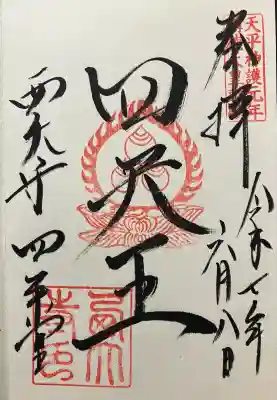 天平神護元年
奉拝
令和七年
六月八日
四天王
西大寺 四王堂